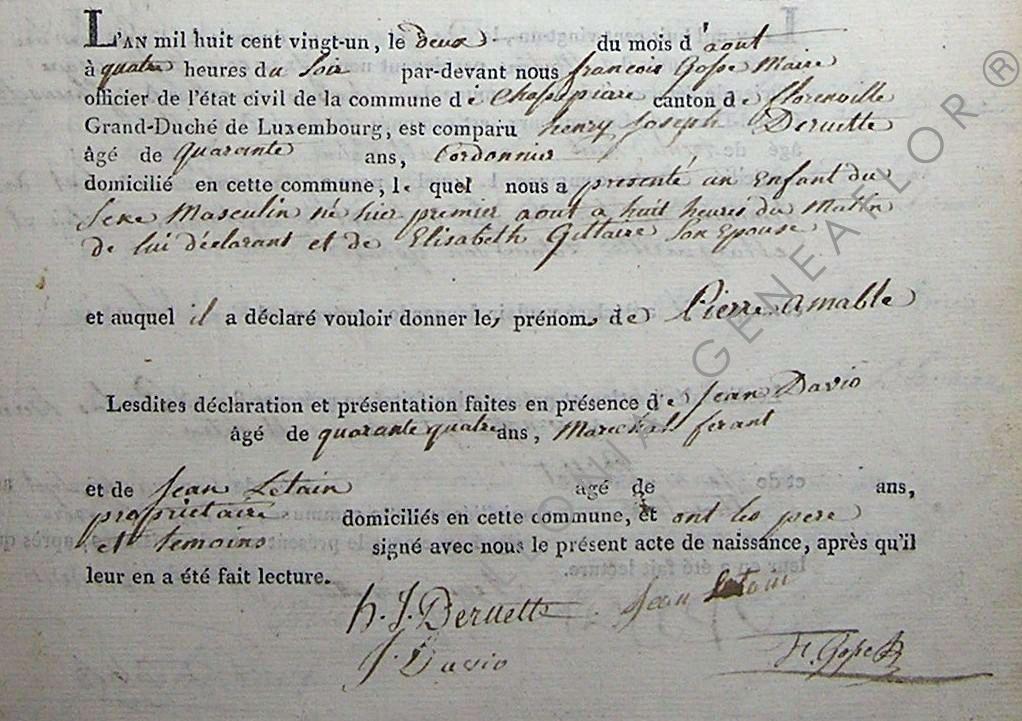 L'AN mil huit cent vingt-un, le deux du mois d'aout
à quatre heures du Soir par-devant nous françois Gosse Maire
officier de l'état civil de la commune de Chassepière canton de florenville
Grand-Duché de Luxembourg, est comparu henry Joseph Deruette
âgé de Quarante ans, Cordonnier
domicilié en cette commune, le quel nous a présenté un Enfant du
Sexe Masculin né hier premier aout a huit heures du Matin
de lui déclarant et de Elisabeth Gillaire Son Epouse
et auquel il a déclaré vouloir donner les prénoms de Pierre amable
Lesdites déclaration et présentation faites en présence de Jean Davio
âgé de quarante quatre ans, Marechal ferant
et de Jean Letain agé de ans,
propriétaire domiciliés en cette commune, et ont les pere
et temoins signé avec nous le présent acte de naissance, après qu'il
leur en a été fait lecture.
h. J. Deruette Jean Letain
J. Davio F. Gosse
GENEALOR ®